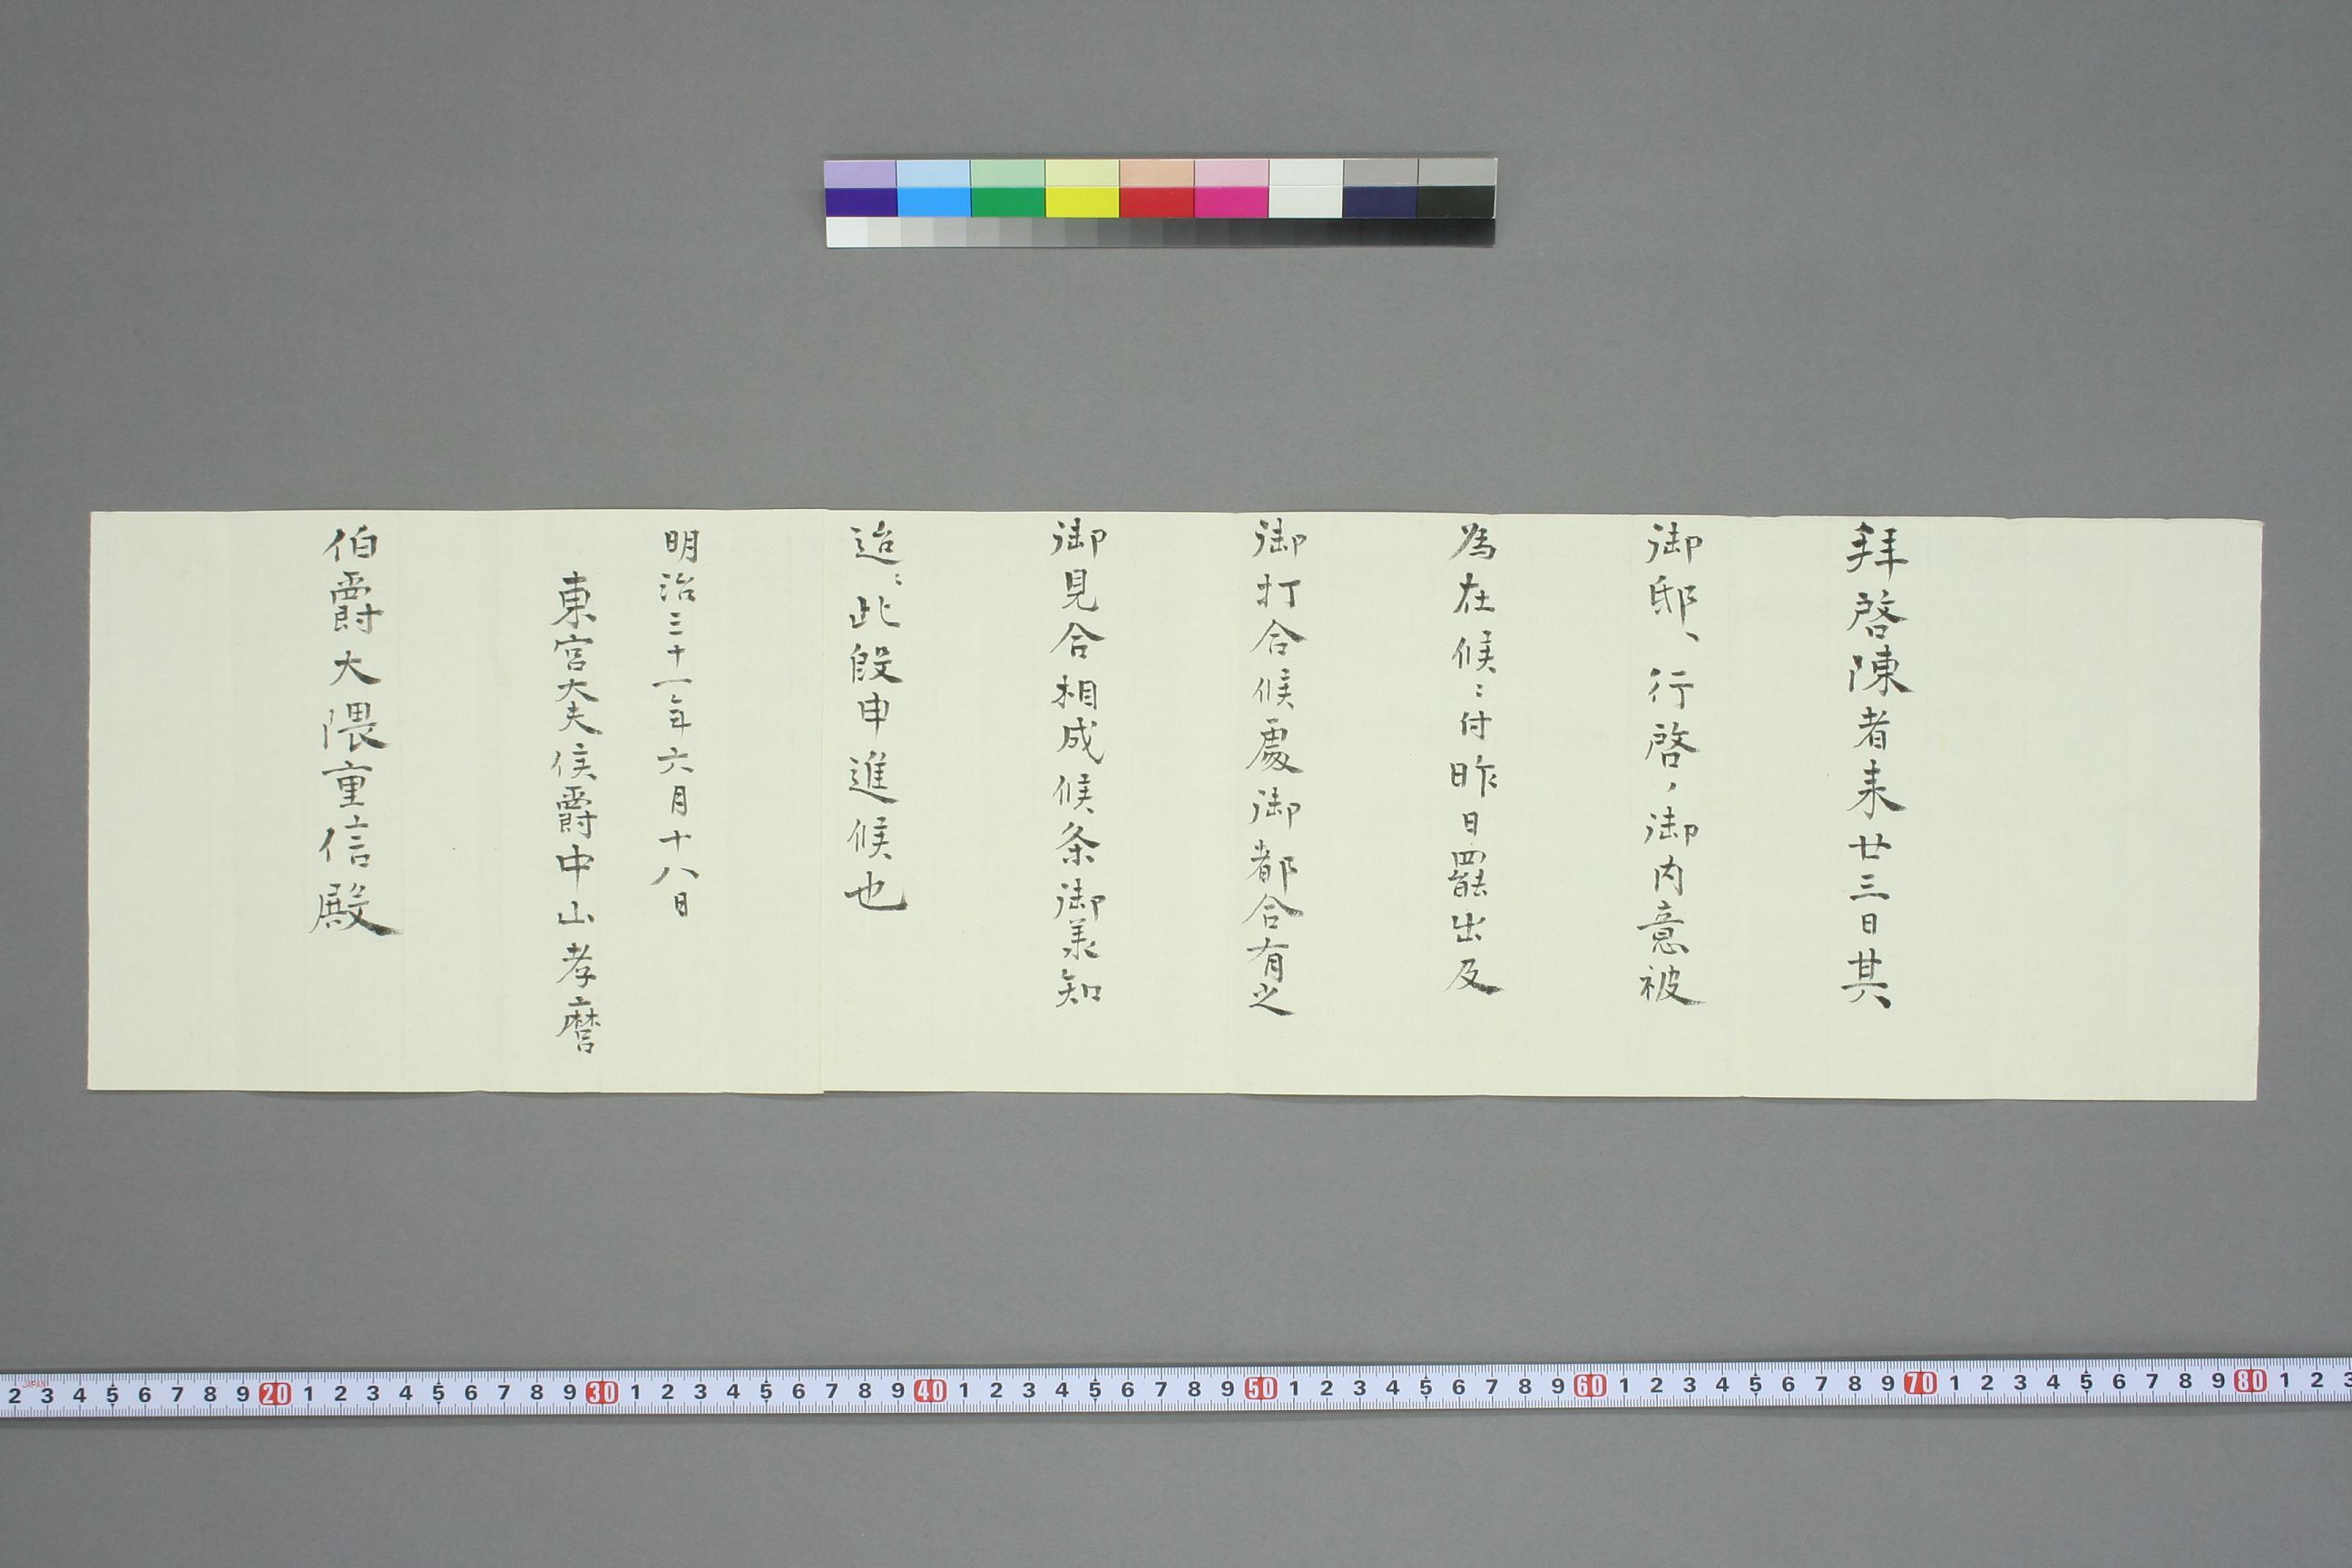 拜啓陳者来廿三日其
御邸ヘ行啓ノ御内意被
為在候ニ付昨日罷出及
御打合候處御都合有之
御見合相成候条御承知
迠ニ此段申進候也
明治三十一年六月十八日
東宮大夫侯爵中山孝麿
伯爵大隈重信殿
2 3 4 5 6 7 8 9 20 1 2 3 4 5 6 7 8 9 30 1 2 3 4 5 6 7 8 9 40 1 2 3 4 5 6 7 8 9 50 1 2 3 4 5 6 7 8 9 60 1 2 3 4 5 6 7 8 9 70 1 2 3 4 5 6 7 8 9 80 1 2 3
JAPAN